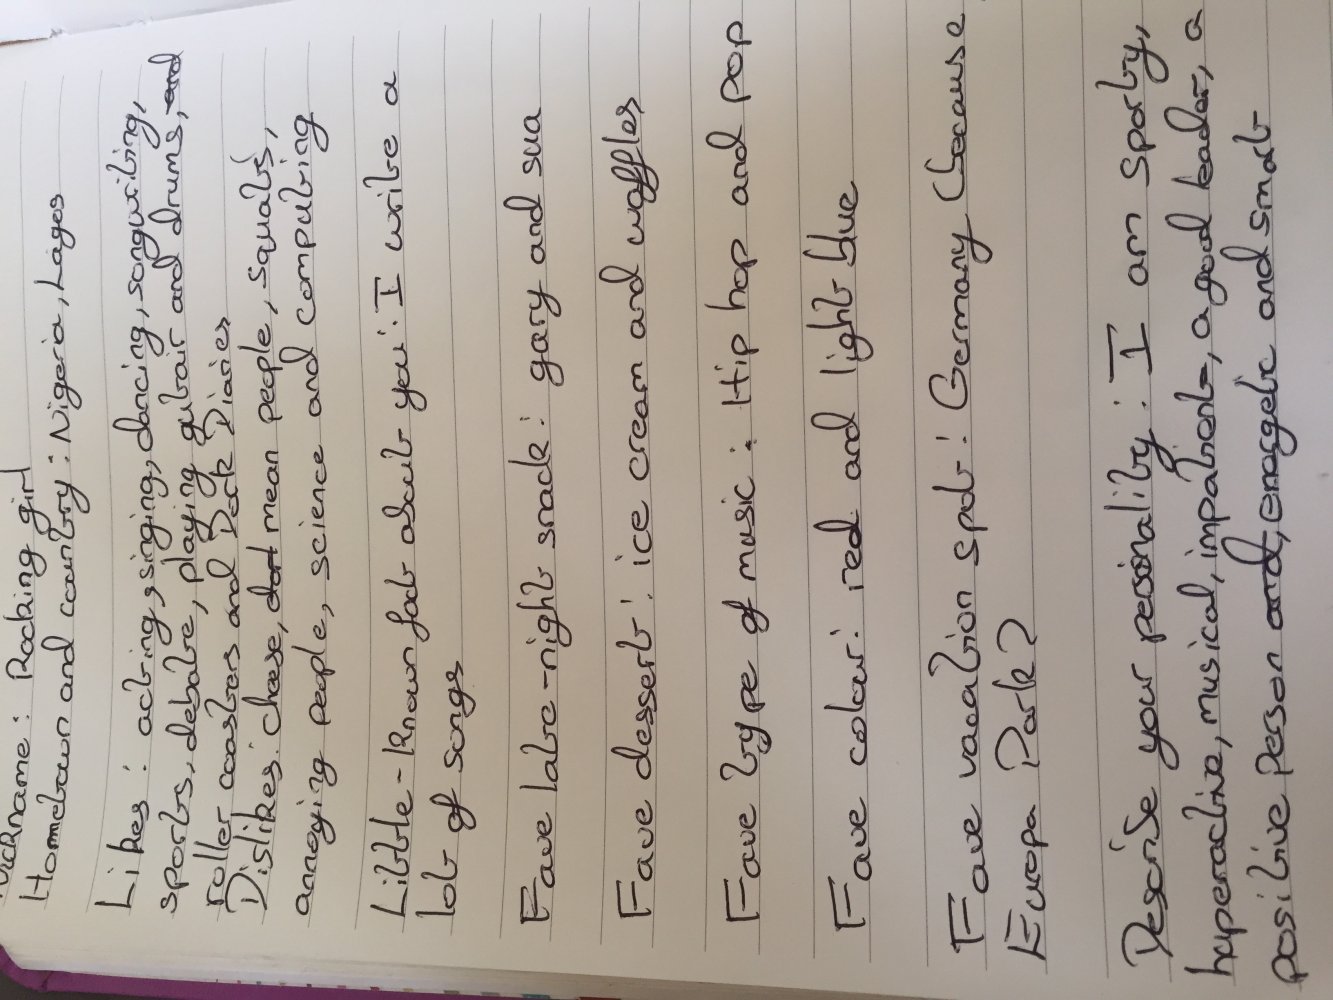 Nickname: Rocking girl
Hometown and country: Nigeria, Lagos
Likes: acting, singing, dancing, songwriting,
sports, debate, playing guitair and drums, and
roller coasters and Dork Diaries
Dislikes: cheese, dort mean people, squats,
annoying people, science and computing
Little-known fact about you: I write a
lot of songs
Fave late-night snack: gary and sua
Fave dessert: ice cream and waffles
Fave type of music: Hip hop and pop
Fave colour: red and light blue
Fave vacation spot: Germany (because,
Europa Park)
Describe your personality: I am sporty,
hyperactive, musical, impatient, a good leader, a
positive person and, energetic and smart